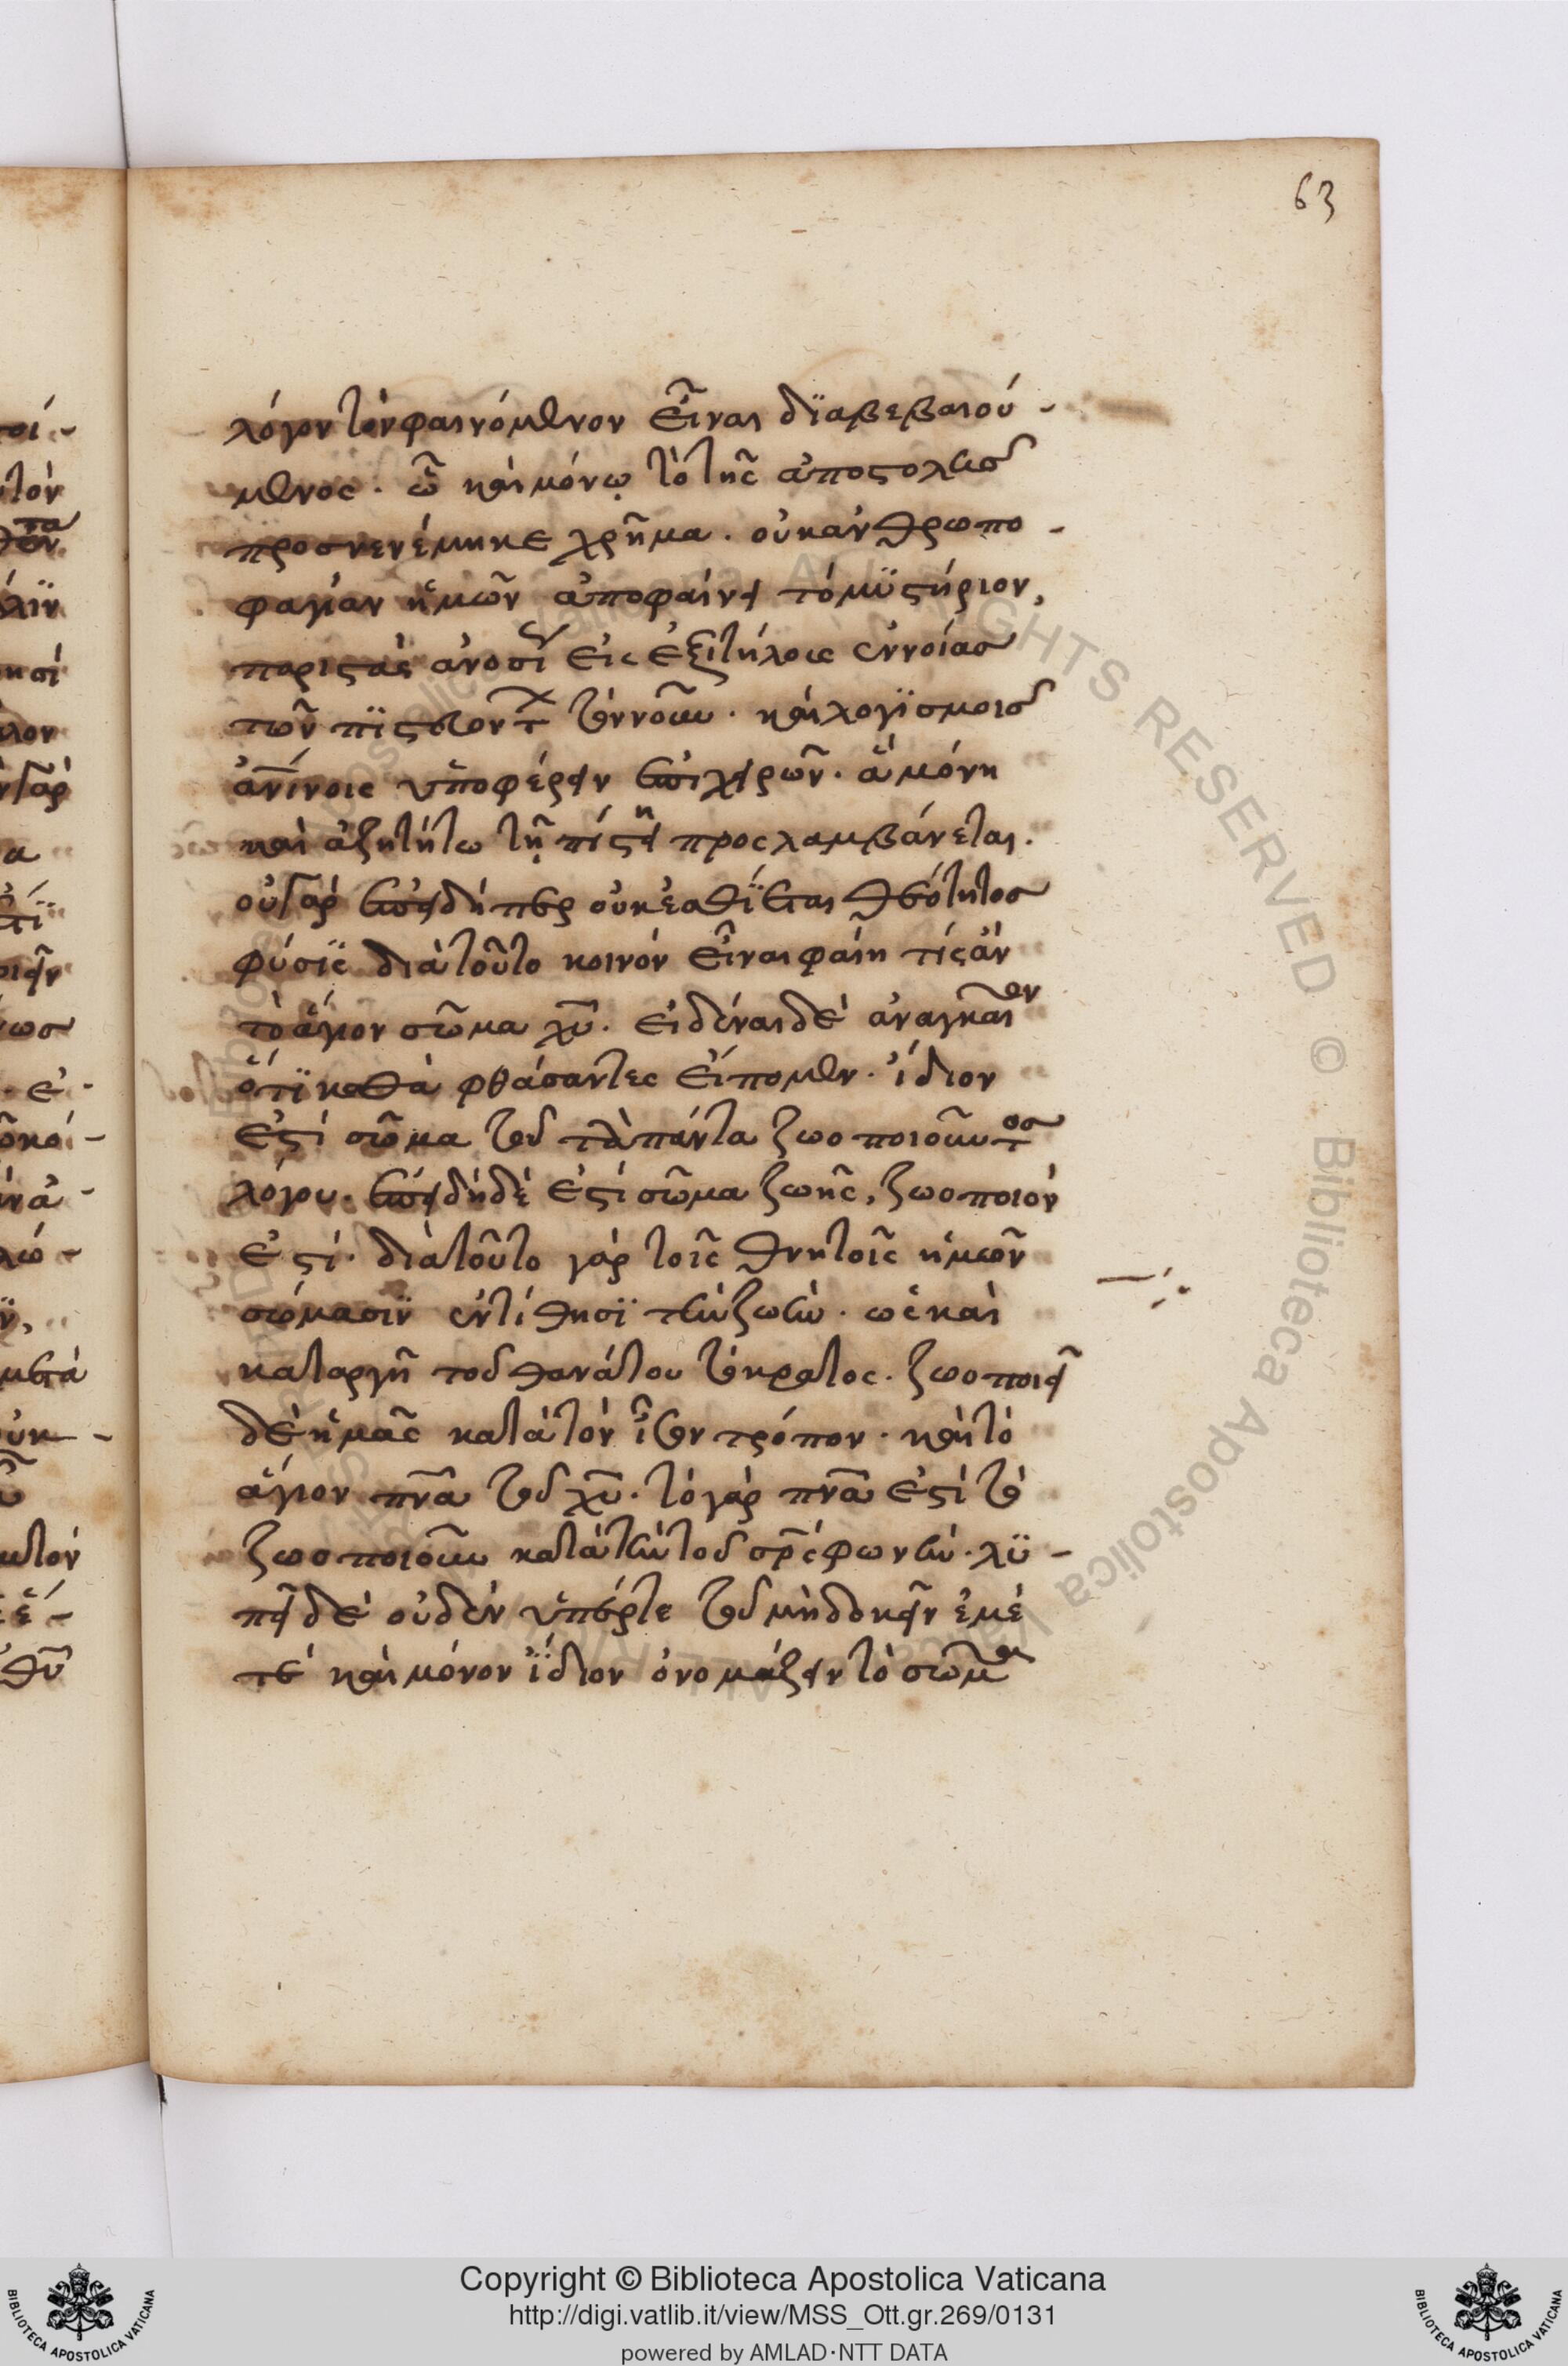 63
λόγον τὸν φαινόμενον εἶναι διαβεβαιού-
μενος. ᾧ καὶ μόνῳ τὸ τῆς ἀποστολῆς
προσνενέμηκε χρῆμα. οὐκ ἀνθρωπο-
φαγίαν ἡμῶν ἀποφαίνει τὸ μϋστήριον,
εἰς ἐξιτήλους ἐννοίας
τῶν πϊστευόντ τὸν νοῦν. καὶ λογϊσμοῖς
ὑποφέρειν ἐπιχειρῶν. ἃ μόνῃ
καὶ ἀζητήτω τῇ πίστει προσλαμβάνεται.
οὐ γὰρ ἐπειδήπερ οὐκ ἐσθίεται θεότητος
φύσϊς διὰ τοῦτο κοινὸν εἶναι φαίη τίς ἂν
τὸ ἅγιον σῶμα χυ. εἰδέναι δὲ ἀναγκαῖον
ὅτϊ καθὰ φθάσαντες εἴπομεν. ἴδιον
ἐστὶ σῶμα τοῦ τὰ πάντα ζωοποιοῦντος
λόγου. ἐπειδὴ δέ ἐστι σῶμα ζωῆς, ζωοποιόν
ἐστί. διὰ τοῦτο γὰρ τοῖς θνητοῖς ἡμῶν
σώμασιν ἐντίθησϊ τὴν ζωήν. ὡς καὶ
καταργῆ τοῦ θανάτου τὸ κράτος. ζωοποιεῖ
δὲ ἡμᾶς κατὰ τὸν ἶσον τρόπον. καὶ τὸ
ἅγιον πνα τοῦ χυ. τὸ γὰρ πνα ἐστὶ τὸ
ζωοποιοῦν κατὰ τὴν τοῦ σρς φωνήν. λϋ-
πεῖ δὲ οὐδὲν ὑμέ-
τε καὶ μόνον ἴδιον ὀνομάζειν τὸ σῶμα
Copyright © Biblioteca Apostolica Vaticana
http://digi.vatlib.it/view/MSS_Ott.gr.269/0131
powered by AMLAD·NTT DATA